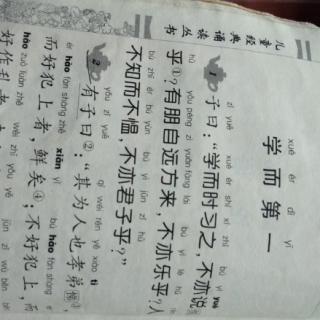 儿童经典诵读丛书
xué ér dì yī
学而第一
zǐ yuē xué ér shí xí zhī bú yì yuè
1 子曰：“学而时习之，不亦说
hū yǒu péng zì yuǎn fāng lái bú yì lè hū
乎①？有朋自远方来，不亦乐乎？人
bù zhī ér bú yùn bú yì jūn zǐ hū
不知而不愠，不亦君子乎？”
yǒu zǐ yuē qí wéi rén yě xiào tì
2 有子曰②：“其为人也孝弟③，
ér hào fàn shàng zhě xiǎn yǐ bú hào fàn shàng
而好犯上者，鲜矣④；不好犯上，而
hào zuò luàn zhě
好作乱者